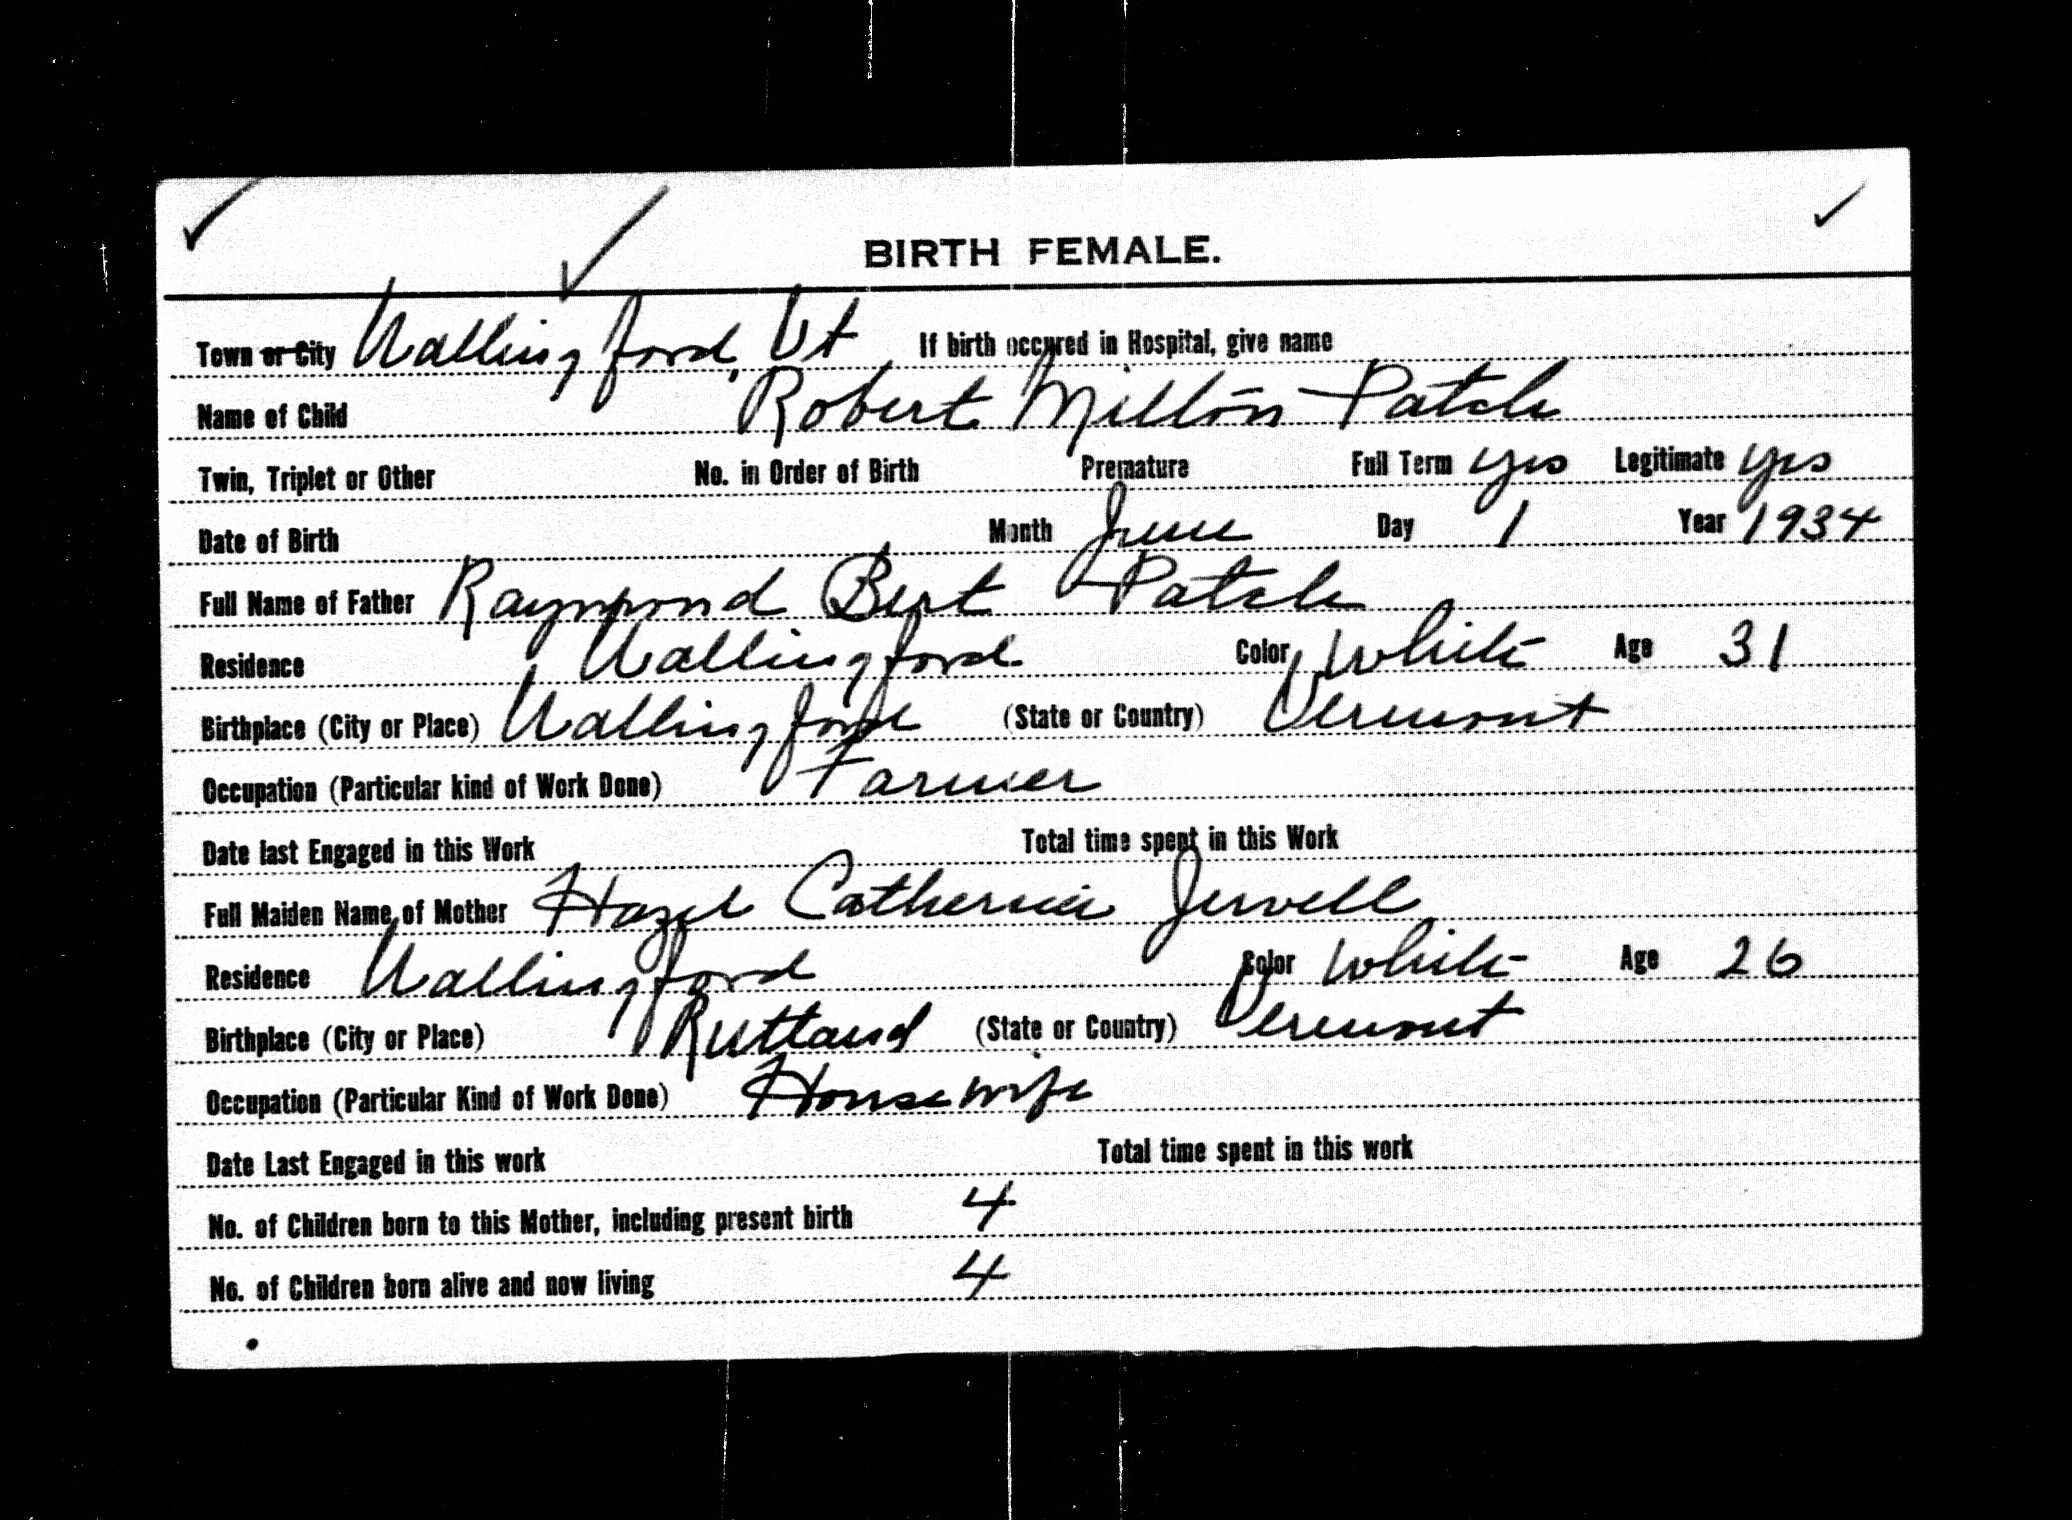 BIRTH FEMALE.
Town or City Wallingford, Vt If birth occured in Hospital, give name
Name of Child Robert Milton Patch
Twin, Triplet or Other No. in Order of Birth Premature Full Term yes Legitimate yes
Date of Birth Month June Day 1 Year 1934
Full Name of Father Raymond Bert Patch
Residence Wallingford Color White Age 31
Birthplace (City or Place) Wallingford (State or Country) Vermont
Occupation (Particular kind of Work Done) Farmer
Date last Engaged in this Work Total time spent in this Work
Full Maiden Name of Mother Hazel Catherine Jewell
Residence Wallingford Color White Age 26
Birthplace (City or Place) Rutland (State or Country) Vermont
Occupation (Particular Kind of Work Done) Housewife
Date Last Engaged in this work Total time spent in this work
No. of Children born to this Mother, including present birth 4
No. of Children born alive and now living 4